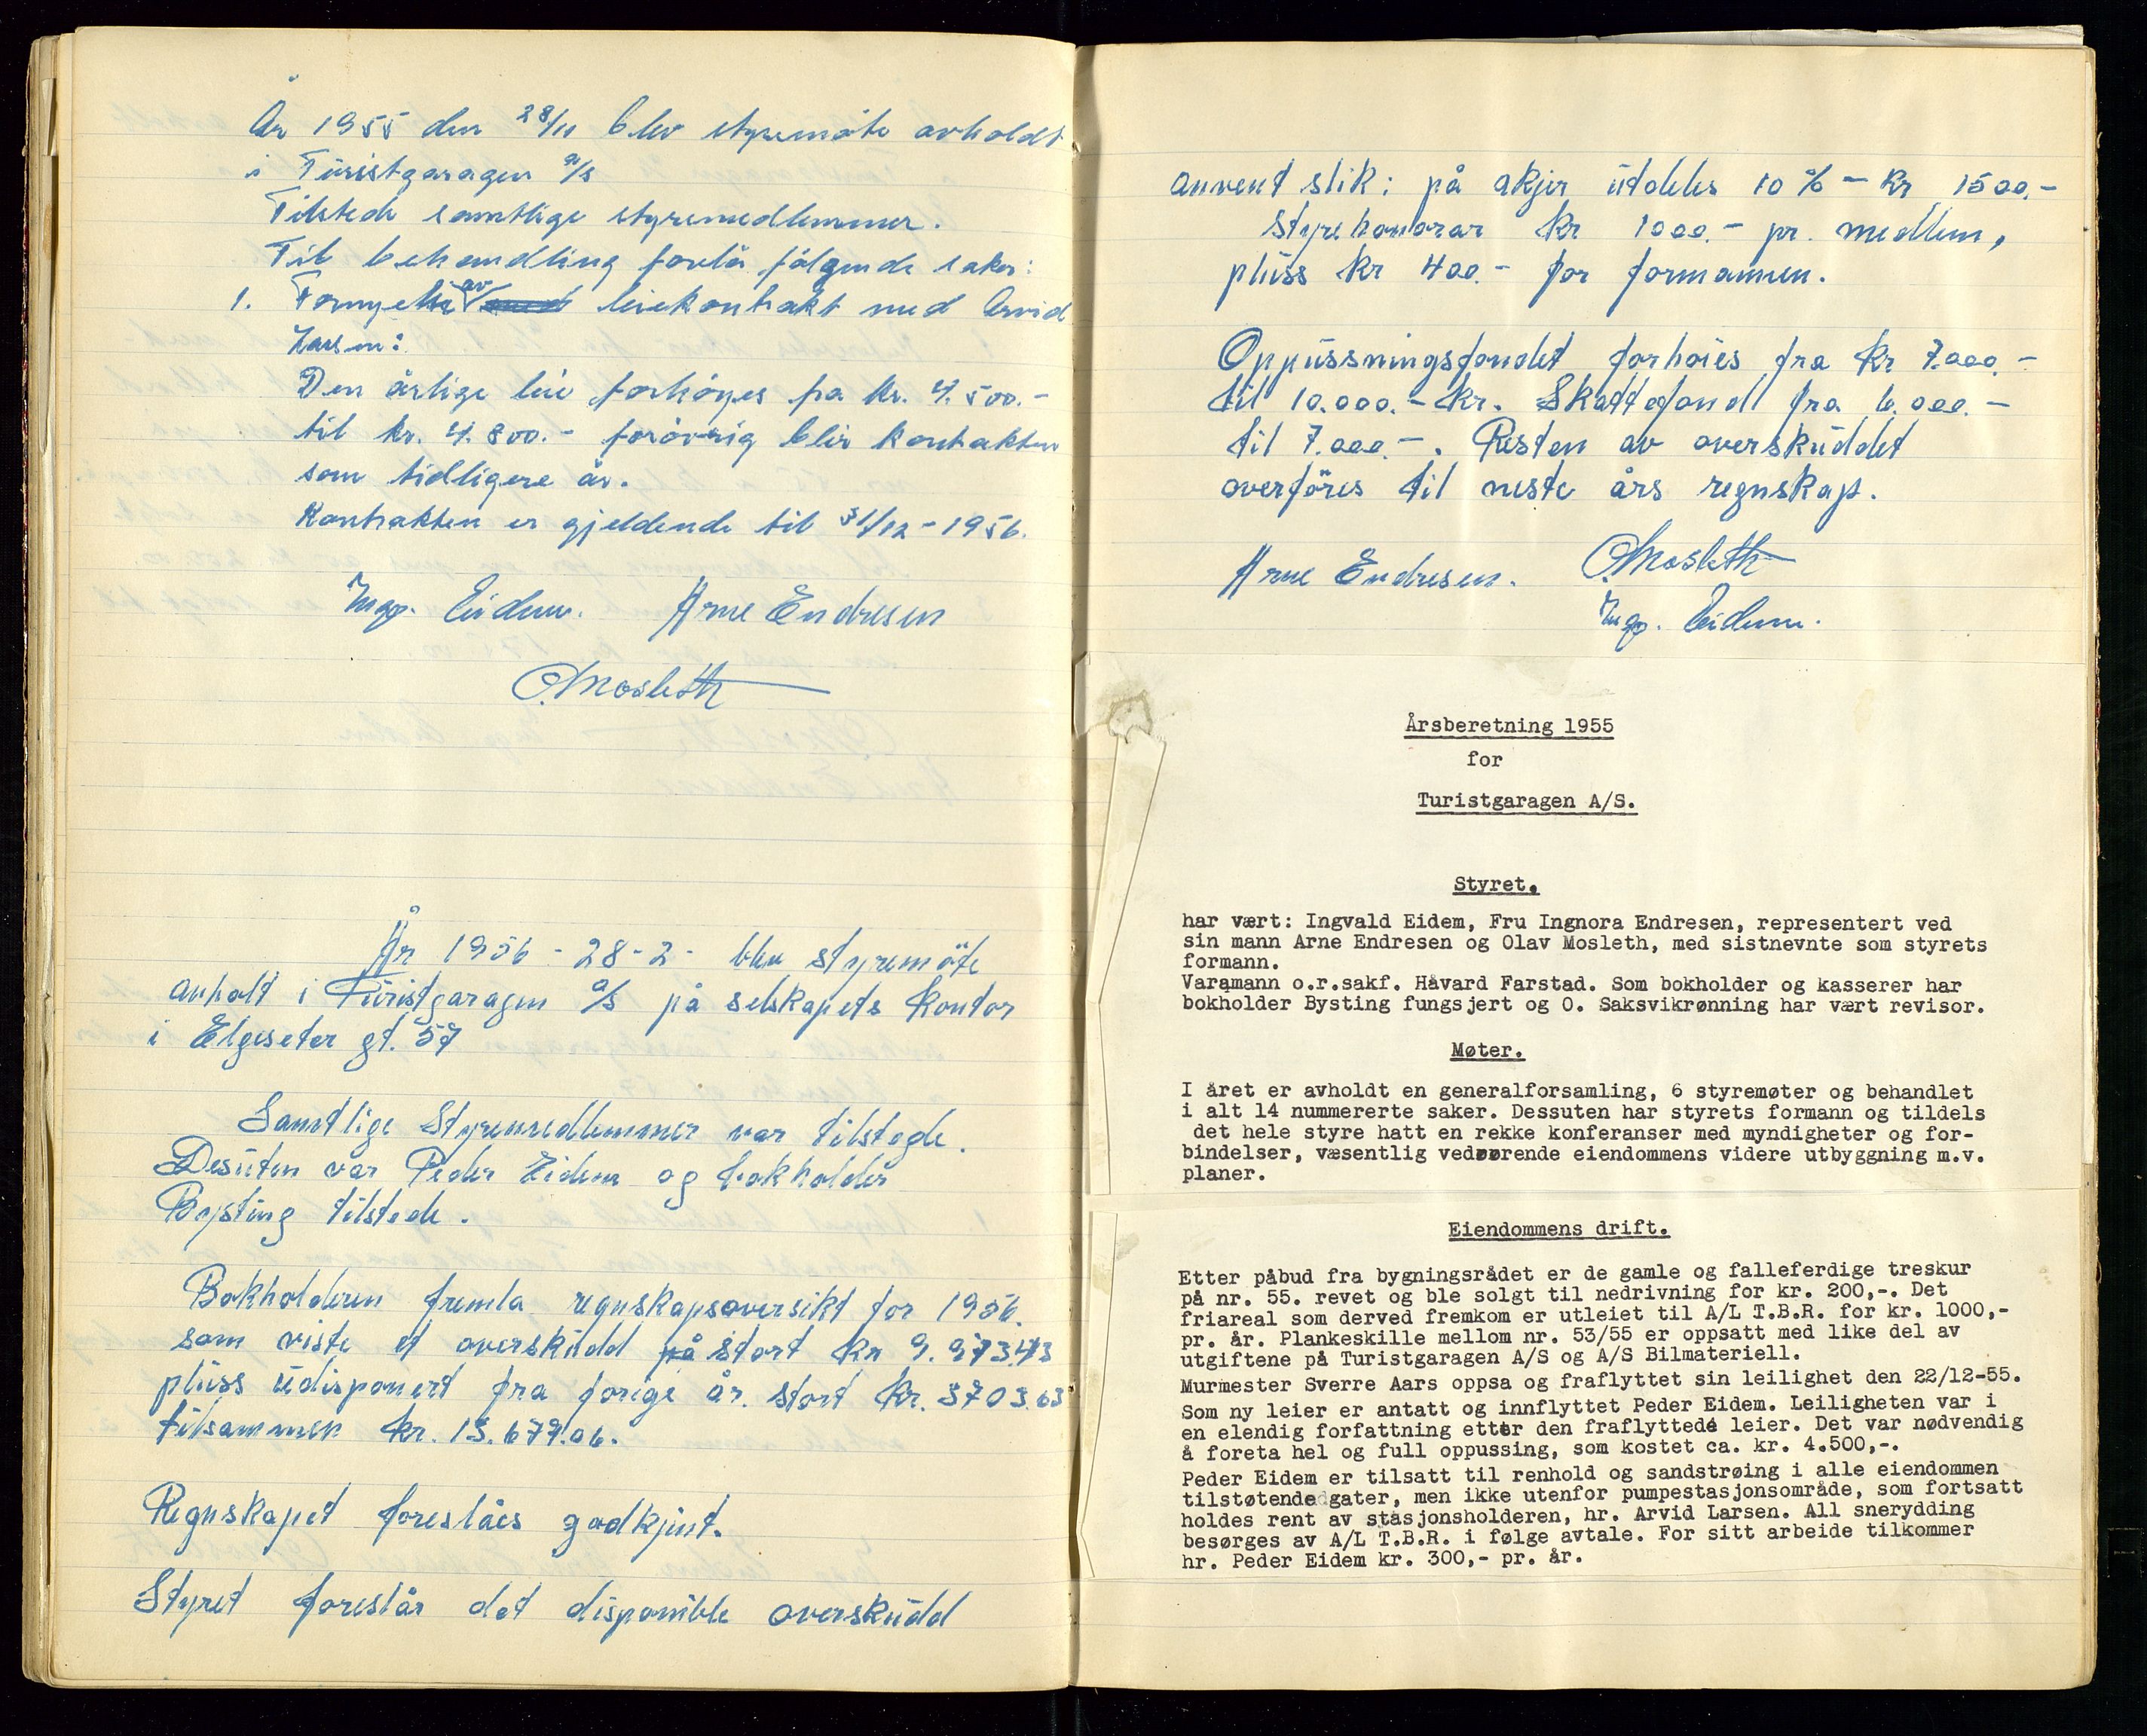 År 1955 den 28/11 blev styremöte avholdt
i Turistgaragen a/s
Tilstede samtlige styremedlemmer.
Til behandling forelå fölgende saker:
1. Fornyelse av leiekontrakt med Arvid
Larsen:
Den årlige leie forhöyes fra kr. 4.500.-
til kr. 4.800.- foröverig blir kontrakten
som tidligere år.
Kontrakten er gjeldende til 31/12 - 1956.
Ingv. Eidem. Arne Endresen
O. Mosleth
År 1956 - 28-2- blev styremöte
avholt i Turistgaragen a/s på selskapets kontor
i Elgeseter gt. 57
Samtlige Styremedlemmer var tilstede.
Desuten var Peder Eidem og bokholder
Bysting tilstede.
Bokholderen fremla regnskapsoversikt for 1956.
som viste et overskudd på stort kr 9.973.43
pluss udisponert fra forige år. stort kr. 3703.63
tilsammen kr. 13.677.06.
Regnskapet foreslåes godkjent.
Styret foreslår det disponible overskudd
anvent slik: på akjer utdeles 10 % - kr 1500.-
styrehonorar kr 1000.- pr. medlem,
pluss kr 400.- for formannen.
Oppussningsfondet forhöies fra kr 7.000.-
til 10.000.- kr. Skattefond fra 6.000.-
til 7.000.-. Resten av overskuddet
overföres til neste års regnskap.
Arne Endresen. O. Mosleth
Ingv. Eidem.
Årsberetning 1955
for
Turistgaragen A/S.
Styret.
har vært: Ingvald Eidem, Fru Ingnora Endresen, representert ved
sin mann Arne Endresen og Olav Mosleth, med sistnevnte som styrets
formann.
Varamann o.r.sakf. Håvard Farstad. Som bokholder og kasserer har
bokholder Bysting fungsjert og O. Saksvikrønning har vært revisor.
Møter.
I året er avholdt en generalforsamling, 6 styremøter og behandlet
i alt 14 nummererte saker. Dessuten har styrets formann og tildels
det hele styre hatt en rekke konferanser med myndigheter og for-
bindelser, væsentlig vedrørende eiendommens videre utbyggning m.v.
planer.
Eiendommens drift.
Etter påbud fra bygningsrådet er de gamle og falleferdige treskur
på nr. 55. revet og ble solgt til nedrivning for kr. 200,-. Det
friareal som derved fremkom er utleiet til A/L T.B.R. for kr. 1000,-
pr. år. Plankeskille mellom nr. 53/55 er oppsatt med like del av
utgiftene på Turistgaragen A/S og A/S Bilmateriell.
Murmester Sverre Aars oppsa og fraflyttet sin leilighet den 22/12-55.
Som ny leier er antatt og innflyttet Peder Eidem. Leiligheten var i
en elendig forfattning etter den fraflyttede leier. Det var nødvendig
å foreta hel og full oppussing, som kostet ca. kr. 4.500,-.
Peder Eidem er tilsatt til renhold og sandstrøing i alle eiendommen
tilstøtende gater, men ikke utenfor pumpestasjonsområde, som fortsatt
holdes rent av stasjonsholderen, hr. Arvid Larsen. All snerydding
besørges av A/L T.B.R. i følge avtale. For sitt arbeide tilkommer
hr. Peder Eidem kr. 300,- pr. år.